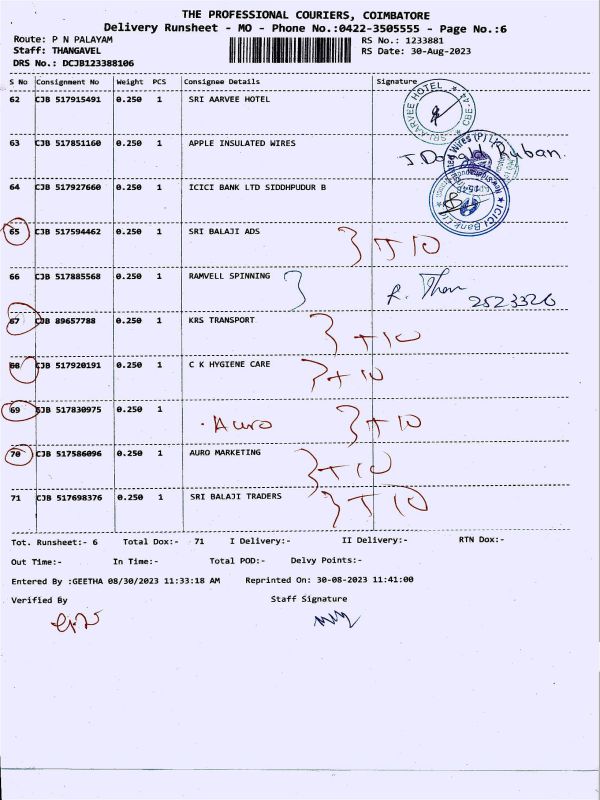 THE PROFESSIONAL COURIERS, COIMBATORE
Delivery Runsheet - MO - Phone No.:0422-3505555 - Page No.:6
Route: P N PALAYAM RS No.: 1233881
Staff: THANGAVEL RS Date: 30-Aug-2023
DRS No.: DCJB123388106
S No Consignment No Weight PCS Consignee Details Signature
62 CJB 517915491 0.250 1 SRI AARVEE HOTEL
SRI AARVEE HOTEL ★ CBE-44 ★
63 CJB 517851160 0.250 1 APPLE INSULATED WIRES J. Donald Ruban.
64 CJB 517927660 0.250 1 ICICI BANK LTD SIDDHPUDUR B
ICICI Bank
65 CJB 517594462 0.250 1 SRI BALAJI ADS } T 10
66 CJB 517885568 0.250 1 RAMVELL SPINNING } 2523326
67 CJB 89657788 0.250 1 KRS TRANSPORT } + 10
68 CJB 517920191 0.250 1 C K HYGIENE CARE } + 10
69 CJB 517830975 0.250 1 . Auro } + 10
70 CJB 517586096 0.250 1 AURO MARKETING } + 10
71 CJB 517698376 0.250 1 SRI BALAJI TRADERS } + 10
Tot. Runsheet:- 6 Total Dox:- 71 I Delivery:- II Delivery:- RTN Dox:-
Out Time:- In Time:- Total POD:- Delvy Points:-
Entered By :GEETHA 08/30/2023 11:33:18 AM Reprinted On: 30-08-2023 11:41:00
Verified By Staff Signature